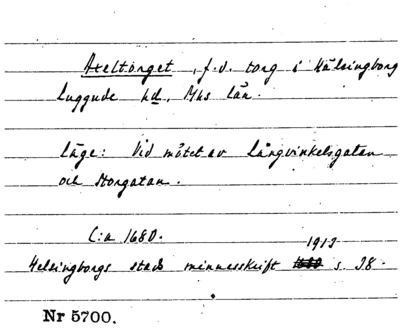 Axeltorget, f.d. torg i Hälsingborg
Luggude hd, Mhs län.
Läge: Vid mötet av Långvinkelsgatan
och Storgatan.
C:a 1680.
1913
Helsingborgs stads minnesskrift s. 38
Nr 5700.